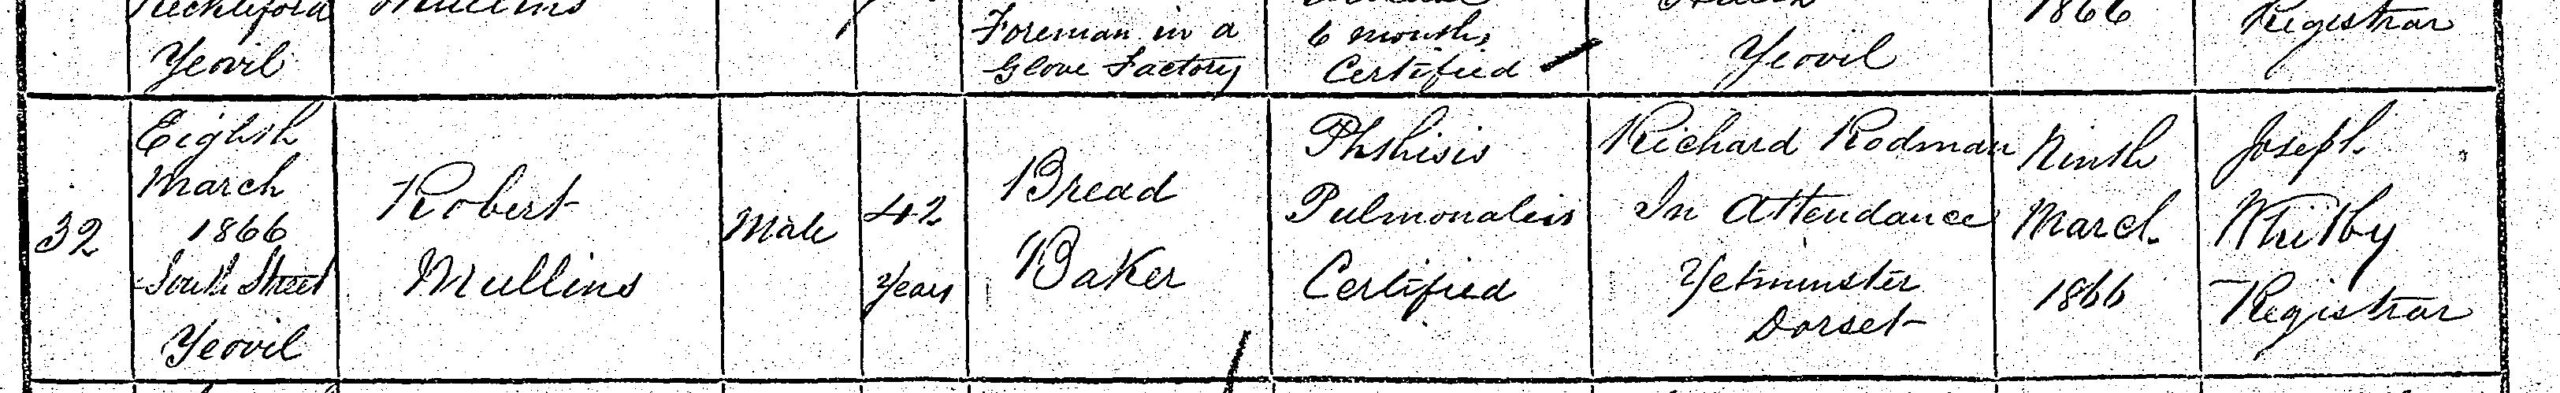 Mullins
Yeovil
Foreman in a
Glove Factory
6 months
Certified
Yeovil
1866
Registrar
32
Eighth
March
1866
South Street
Yeovil
Robert
Mullins
Male
42
Years
Bread
Baker
Phthisis
Pulmonalis
Certified
Richard Rodman
In Attendance
Yetminster
Dorset
Ninth
March
1866
Joseph
Whitby
Registrar